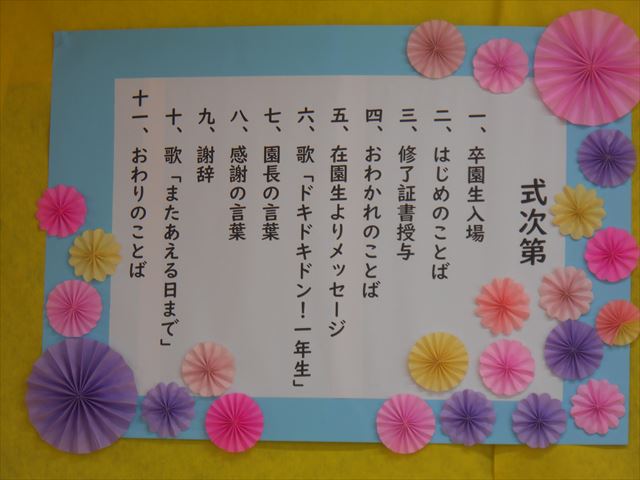 式次第
一、卒園生入場
二、はじめのことば
三、修了証書授与
四、おわかれのことば
五、在園生よりメッセージ
六、歌「ドキドキドン！一年生」
七、園長の言葉
八、感謝の言葉
九、謝辞
十、歌「またあえる日まで」
十一、おわりのことば